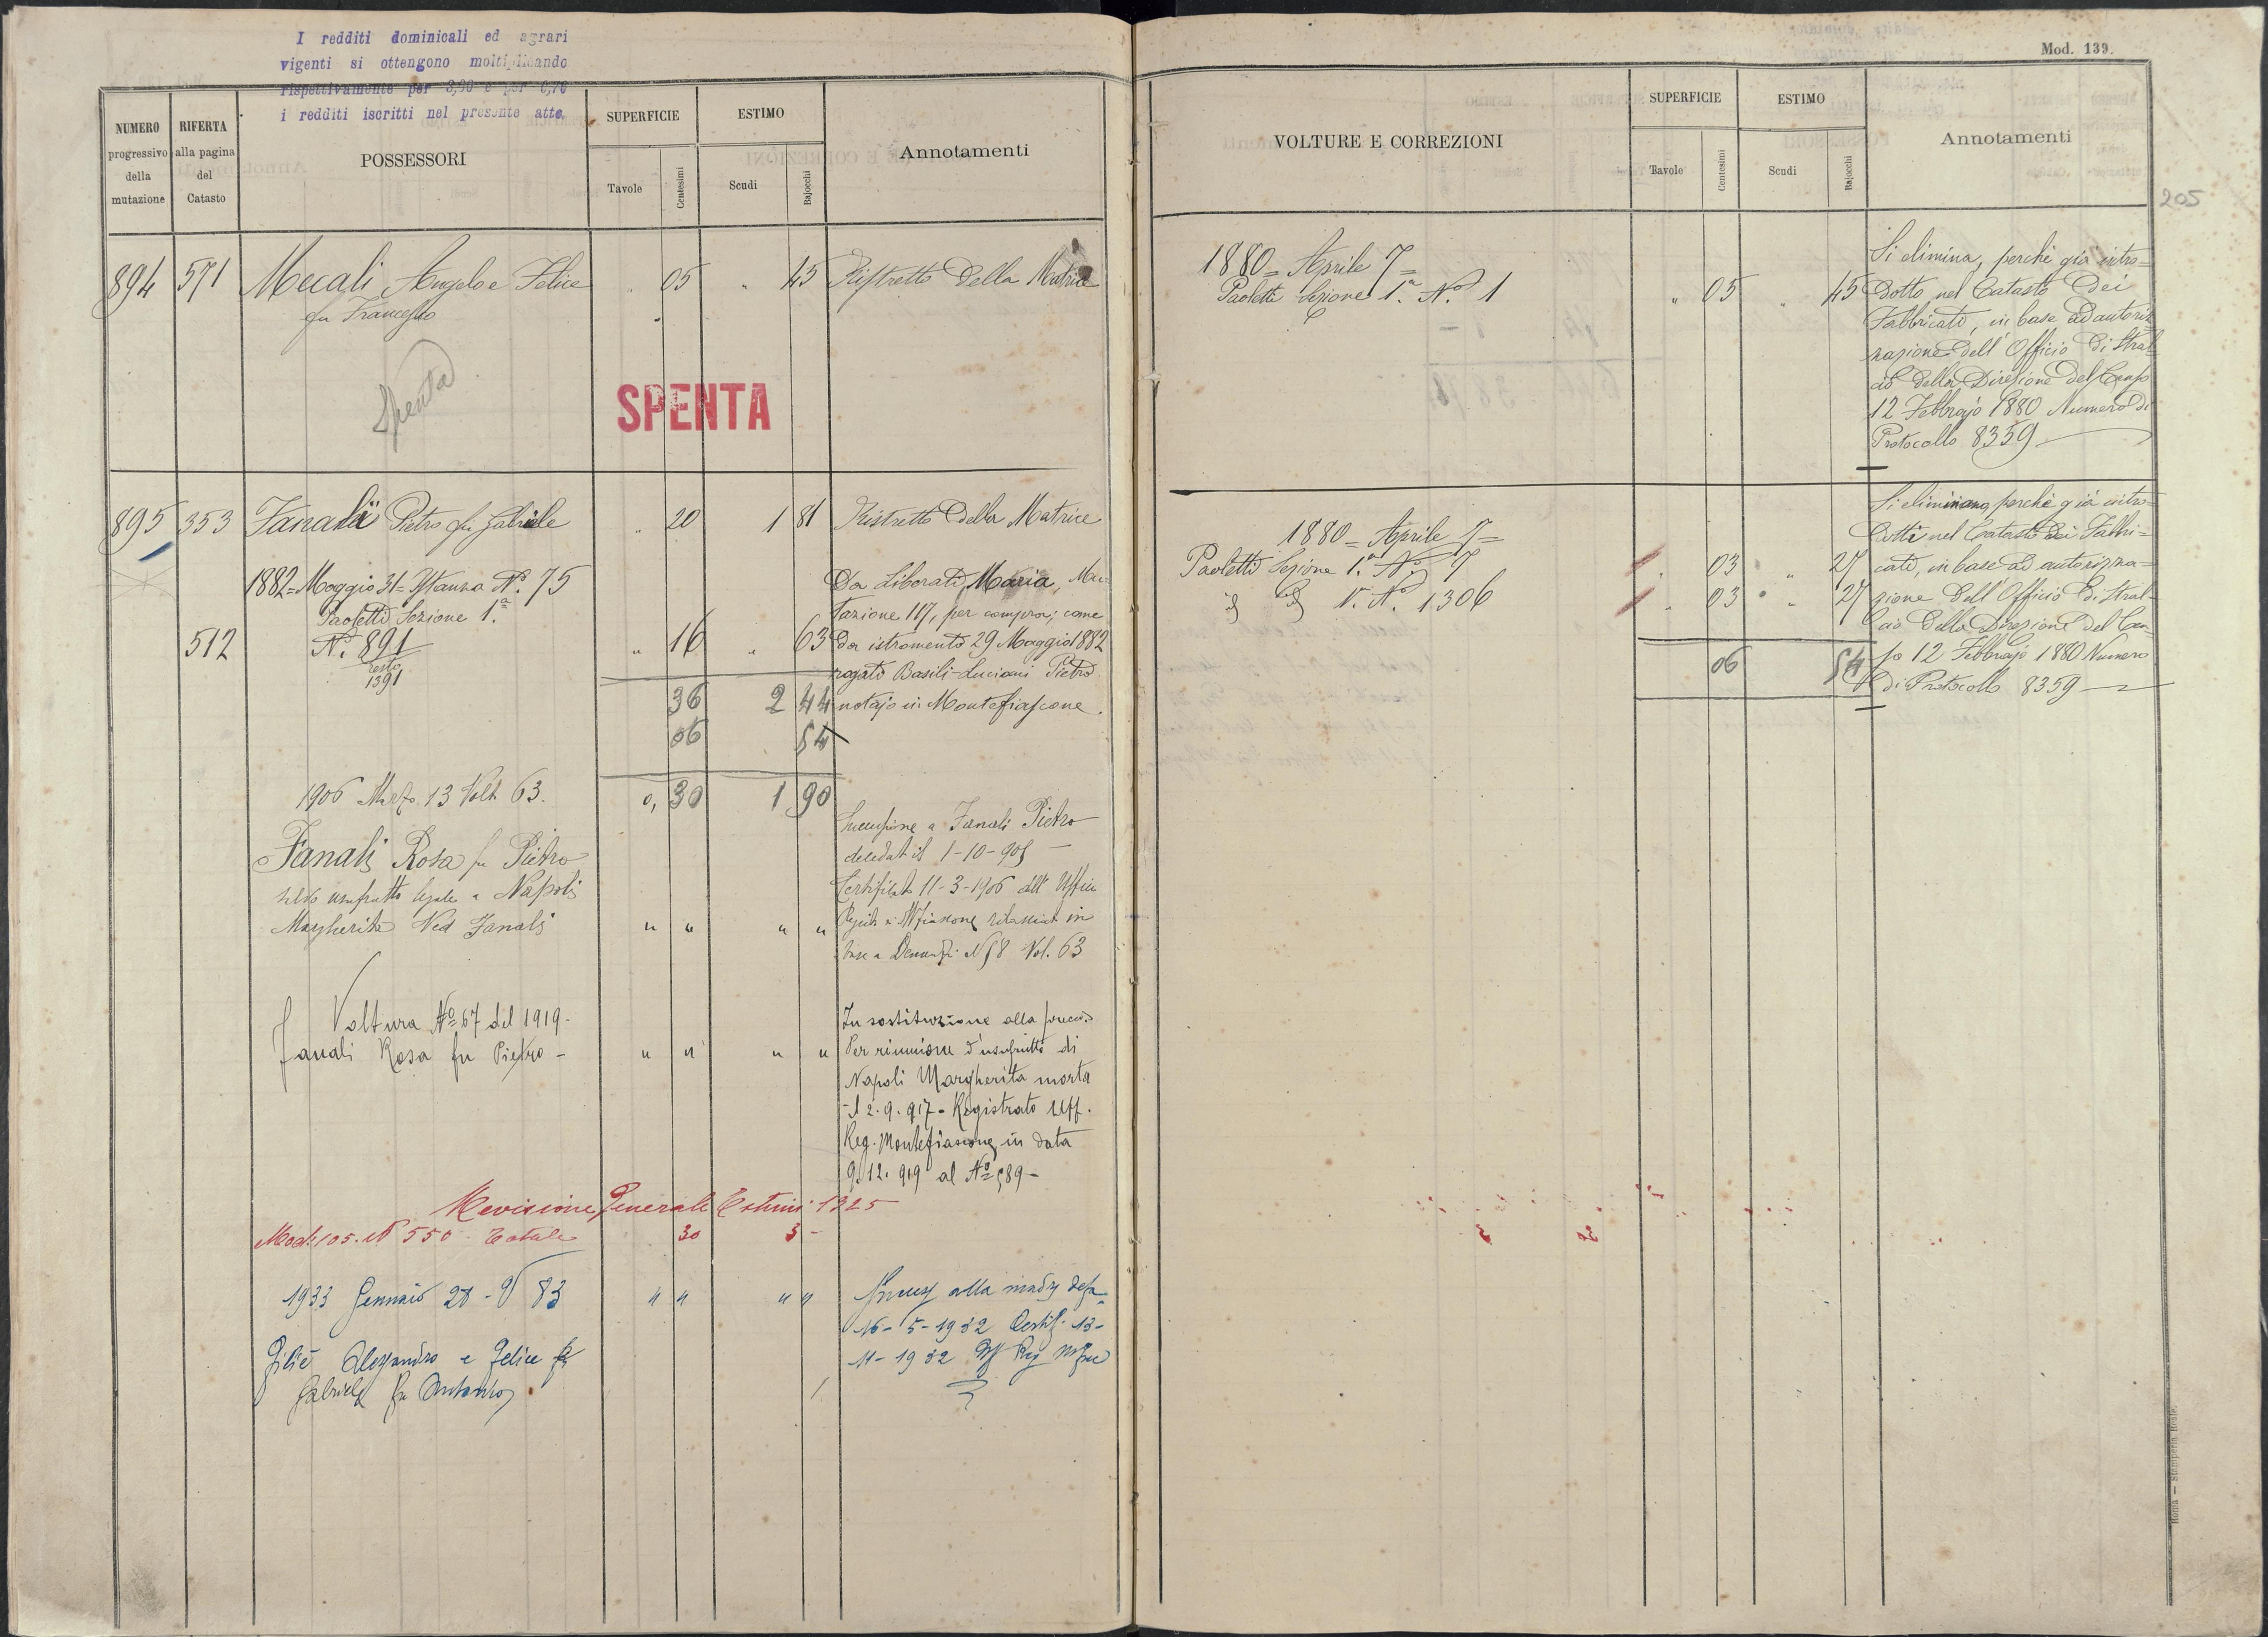 I redditi dominicali ed agrari
vigenti si ottengono moltiplicando
rispettivamente per 3,90 e per 0,70
i redditi iscritti nel presente atto.
NUMERO progressivo della mutazione
RIFERTA alla pagina del Catasto
POSSESSORI
SUPERFICIE
Tavole
Centesimi
ESTIMO
Scudi
Bajocchi
Annotamenti
894 571 Mecali Angelo e Felice " 05 " 45 Ristretto della Matrice
fu Francesco
Spenta
SPENTA
895 353 Fanali Pietro fu Gabriele " 20 1 81 Ristretto della Matrice
1882 = Maggio 31 = Istanza N.° 75
Paoletti Sezione 1.a
512 N.° 891 " 16 " 63
resto
1391
Da Liberati Maria, Mu-
tazione 117, per compra; come
da istromento 29 Maggio 1882
rogato Basili-Luciani Pietro
notajo in Montefiascone.
36 2 44
06 54
1906 Marzo 13 Volt. 63. 0, 30 1 90
Fanali Rosa fu Pietro
salvo usufrutto legale a Napoli
Margherita Ved Fanali " " " "
Successione a Fanali Pietro
deceduto il 1-10-905 -
Certificato 11-3-1906 dell' Ufficio
Registro di Mfiascone rilasciato in
base a Denunzia N 58 Vol. 63
Voltura N° 67 del 1919 -
Fanali Rosa fu Pietro - " " " "
In sostituzione alla preced.
Per riunione d'usufrutto di
Napoli Margherita morta
il 2.9.917 - Registrato Uff.
Reg. Montefiascone in data
9.12.919 al N° 589 -
Revisione Generale Estimi 1925
Mod. 105. N 550. Totale 30 3 -
1933 Gennaio 28 - N 83 " " " "
Gilié Alessandro e Felice fu
Gabriele fu Antonio
alla madre
16-5-1932 Certif. 13-
11-1932 Uff Reg
Mod. 139.
205
VOLTURE E CORREZIONI
SUPERFICIE
Tavole
Centesimi
ESTIMO
Scudi
Bajocchi
Annotamenti
1880 = Aprile 7 =
Paoletti Sezione 1.a N.° 1 " 05 " 45
Si elimina, perchè già intro-
dotto nel Catasto dei
Fabbricati, in base ad autoriz-
zazione dell' Officio di Stral-
cio della Direzione del Censo
12 Febbrajo 1880 Numero di
Protocollo 8359
1880 = Aprile 7 =
Paoletti Sezione 1.a N.° 7 " 03 " 27
id id 1.a N.° 1306 " 03 " 27
06 54
Si eliminano, perchè già intro-
dotti nel Catasto dei Fabbri-
cati, in base ad autorizza-
zione dell' Officio di Stral-
cio della Direzione del Cen-
so 12 Febbrajo 1880 Numero
di Protocollo 8359
Roma — Stamperia Reale.